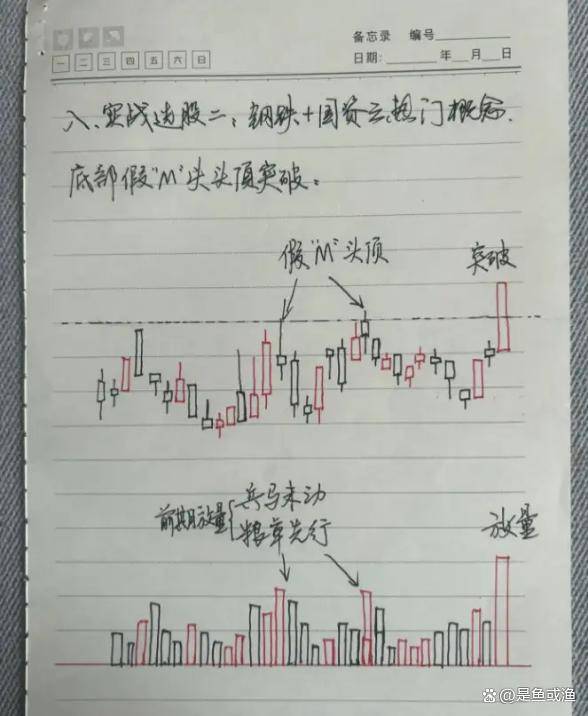 备忘录 编号
一 二 三 四 五 六 日
日期: 年 月 日
八、实战选股二:钢铁+国资云热门概念,
底部假"M"头顶突破。
假"M"头顶
突破
前期放量
兵马未动
粮草先行
放量
是鱼或渔